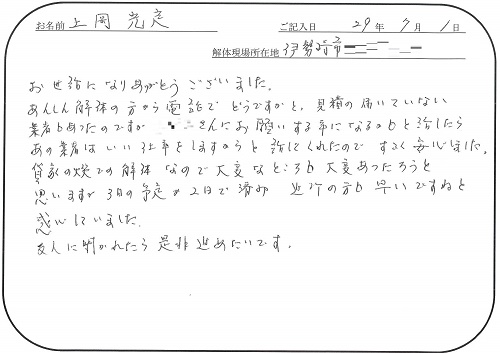 お名前 上岡 光定 ご記入日 29年 7月 1日
解体現場所在地 伊勢崎市
お世話になりありがとうございました。
あんしん解体の方から電話でどうですかと、見積の届いていない
業者もあったのですが さんにお願いする事になるかもと話したら
あの業者はいい仕事をしますからと話してくれたのですごく安心しました。
貸家の横での解体なので大変なところも大変あったろうと
思いますが3日の予定が2日で済み 近所の方も早いですねと
感心していました。
友人に聞かれたら是非進めたいです。